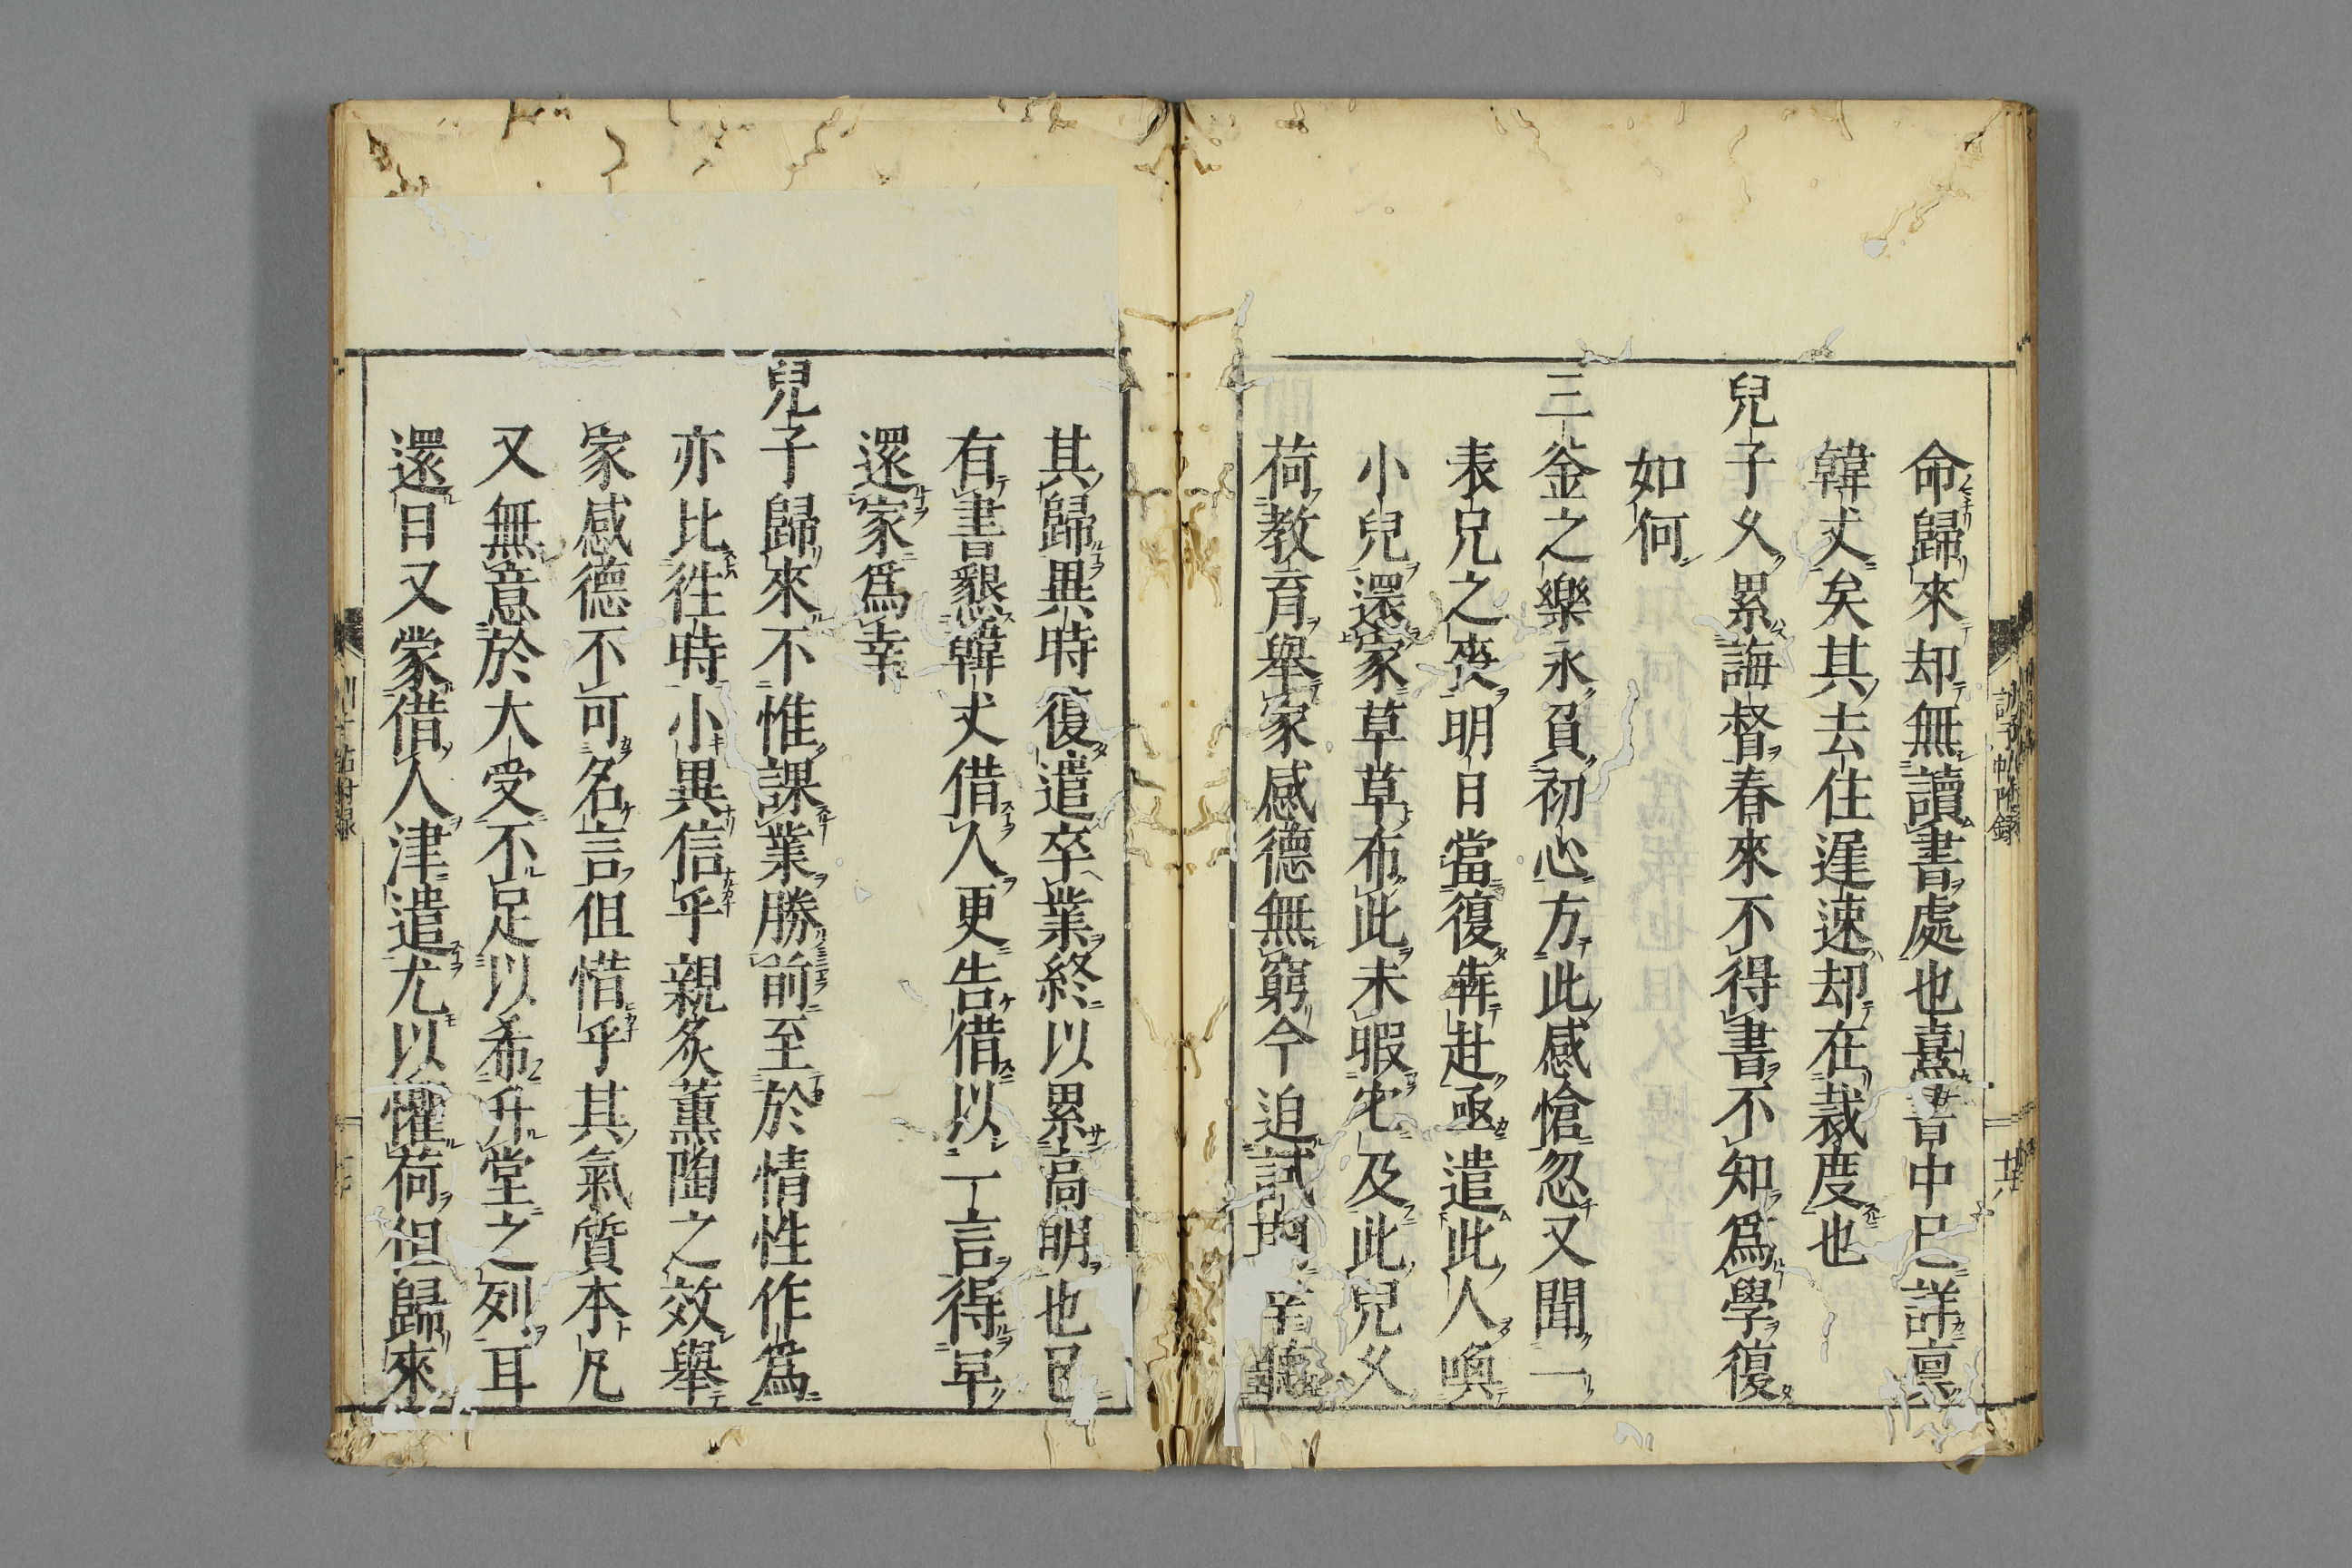 命歸來却無讀書處也熹書中已詳稟
韓丈矣其去住遲速却在裁度也
兒子久累誨督春來不得書不知爲學復
如何
三釜之樂永負初心方此感愴忽又聞一
表兄之喪明日當復犇赴亟遣此人喚
小兒還家草草布此未暇它及此兒久
荷教育舉家感德無窮今迫試期
其歸異時復遣卒業終以累高明也已
有書懇韓丈借人更告借以一言得早
還家爲幸
兒子歸來不惟課業勝前至於情性作爲
亦比徃時小異信乎親炙薰陶之效舉
家感德不可名言但惜乎其氣質本凡
又無意於大受不足以希升堂之列耳
還日又蒙借人津遣尤以懼荷但歸來
訓子帖附録
廿六